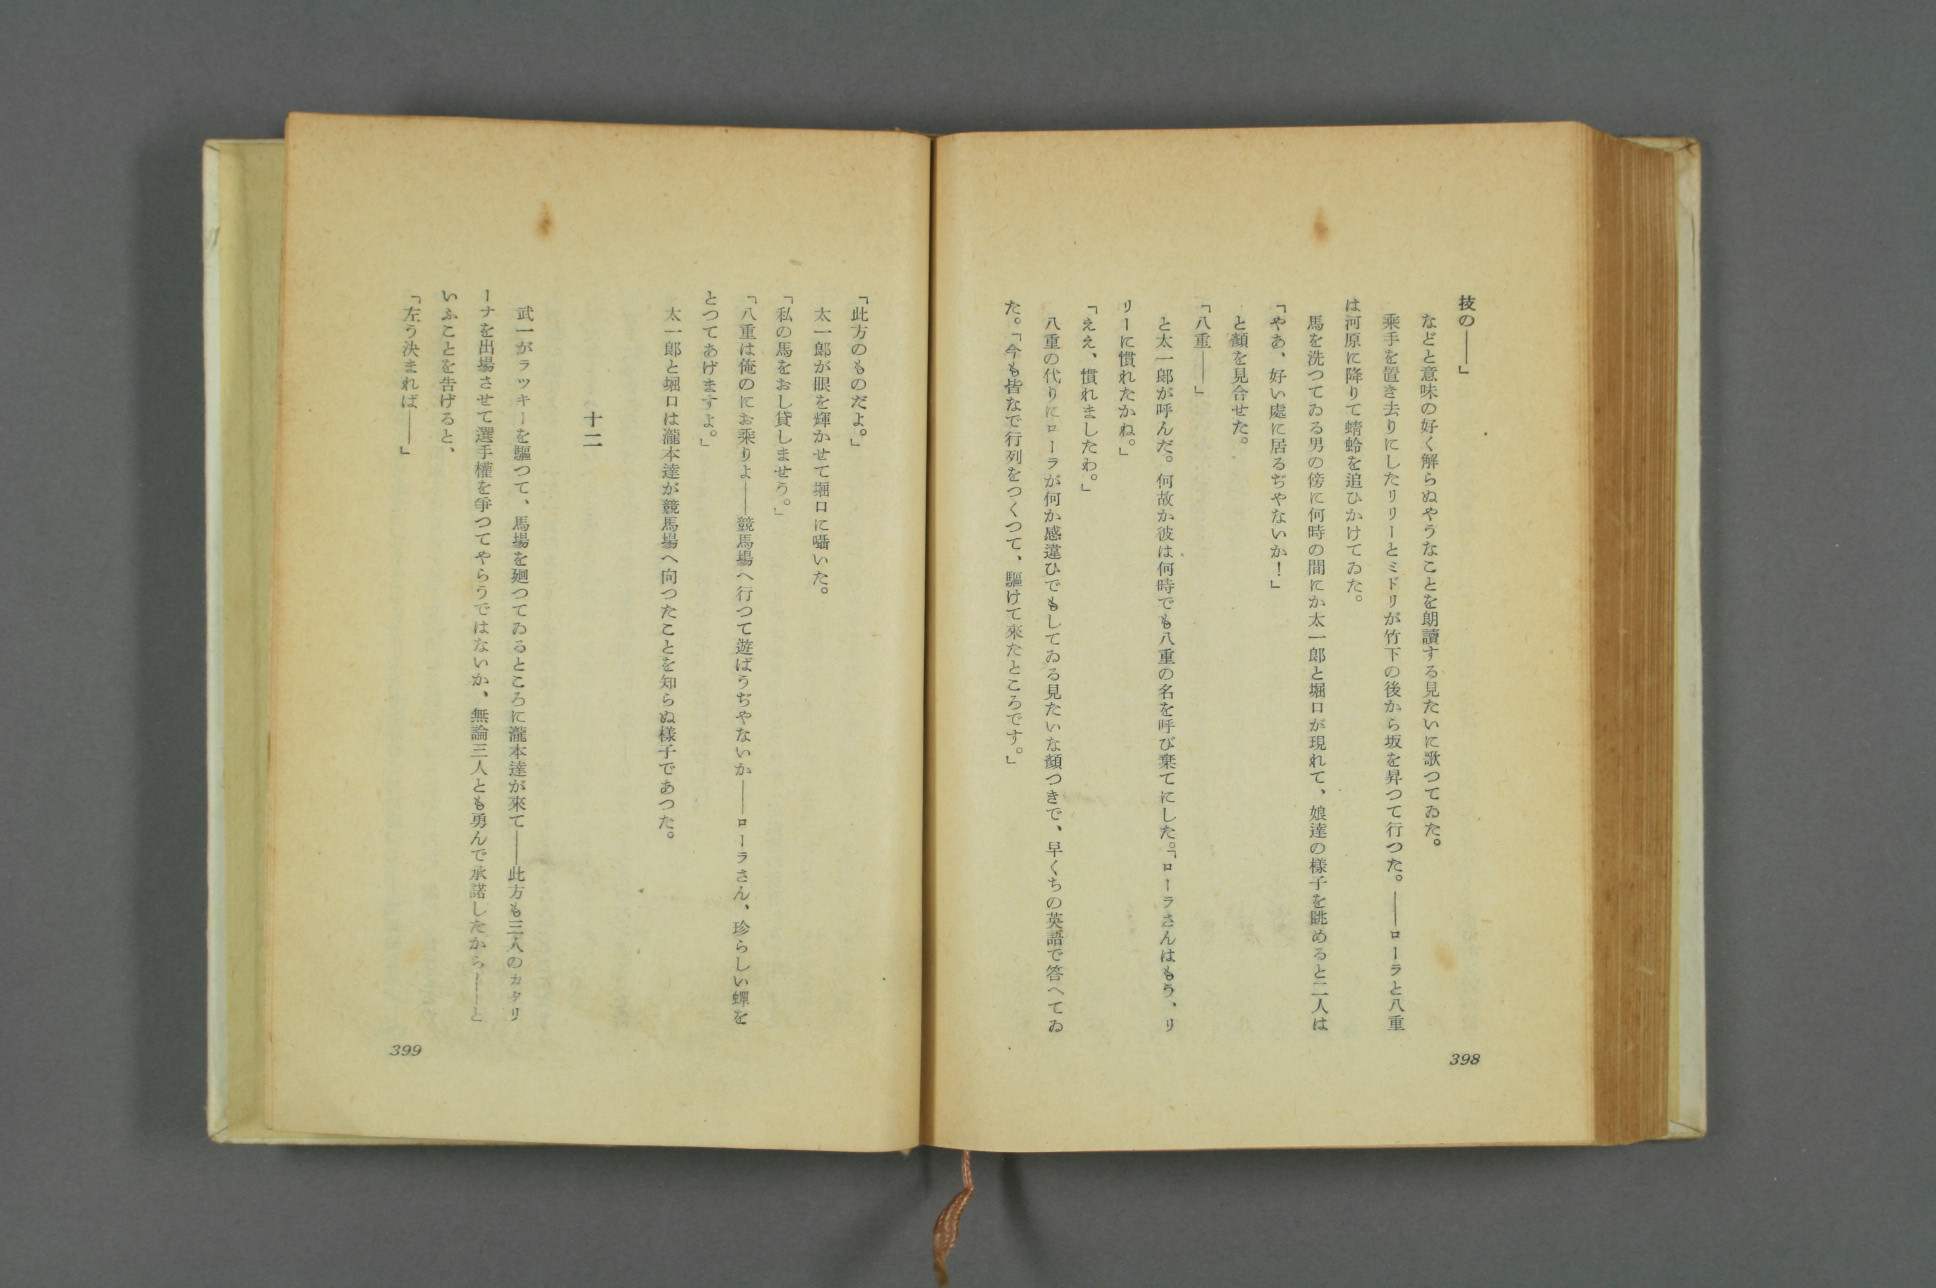 技の――」
などと意味の好く解らぬやうなことを朗讀する見たいに歌つてゐた。
乘手を置き去りにしたリリーとミドリが竹下の後から坂を昇つて行つた。――ローラと八重
は河原に降りて蜻蛉を追ひかけてゐた。
馬を洗つてゐる男の傍に何時の間にか太一郎と堀口が現れて、娘達の樣子を眺めると二人は
「やあ、好い處に居るぢやないか！」
と顏を見合せた。
「八重――」
と太一郎が呼んだ。何故か彼は何時でも八重の名を呼び棄てにした。「ローラさんはもう、リ
リーに慣れたかね。」
「ええ、慣れましたわ。」
八重の代りにローラが何か感違ひでもしてゐる見たいな顏つきで、早くちの英語で答へてゐ
た。「今も皆なで行列をつくつて、驅けて來たところです。」
398
「此方のものだよ。」
太一郎が眼を輝かせて堀口に囁いた。
「私の馬をおし貸しませう。」
「八重は俺のにお乘りよ――競馬場へ行つて遊ばうぢやないか――ローラさん、珍らしい蟬を
とつてあげますよ。」
太一郎と堀口は瀧本達が競馬場へ向つたことを知らぬ樣子であつた。
十二
武一がラッキーを驅つて、馬場を廻つてゐるところに瀧本達が來て――此方も三人のカタリ
ーナを出場させて選手權を爭つてやらうではないか、無論三人とも勇んで承諾したから――と
いふことを告げると、
「左う決まれば――」
399